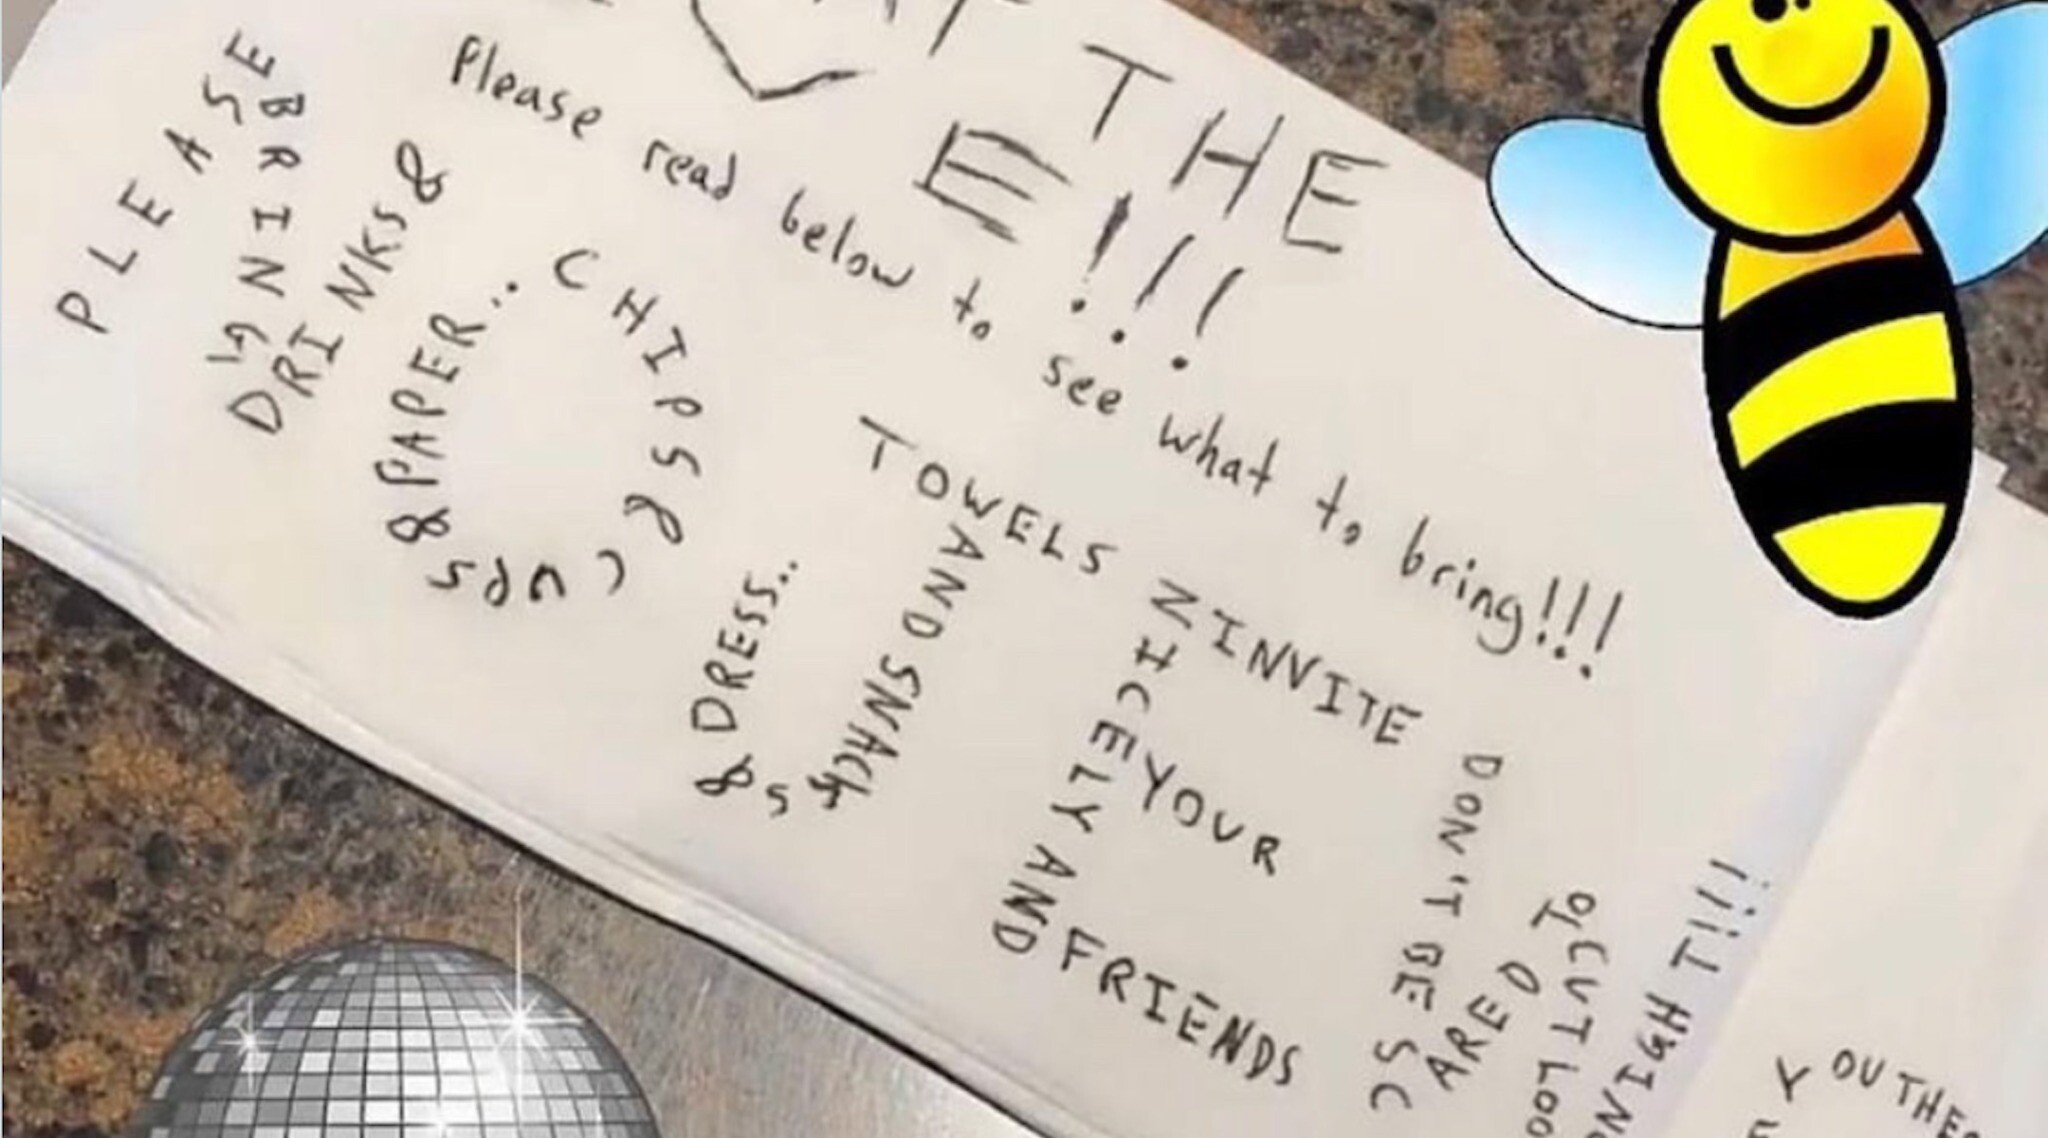 AT THE
E!!!
Please read below to see what to bring!!!
PLEASE
BRING
DRINKS &
CHIPS & CUPS & PAPER..
TOWELS
AND SNACKS & DRESS..
NICELY AND
INVITE
YOUR
FRIENDS
DON'T BE SC
ARED
TO
CUT LOO
NIGHT!!!
YOU THE